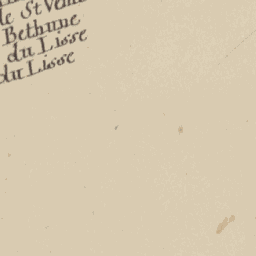 de St Ven
Bethune
du Lisse
du Lisse